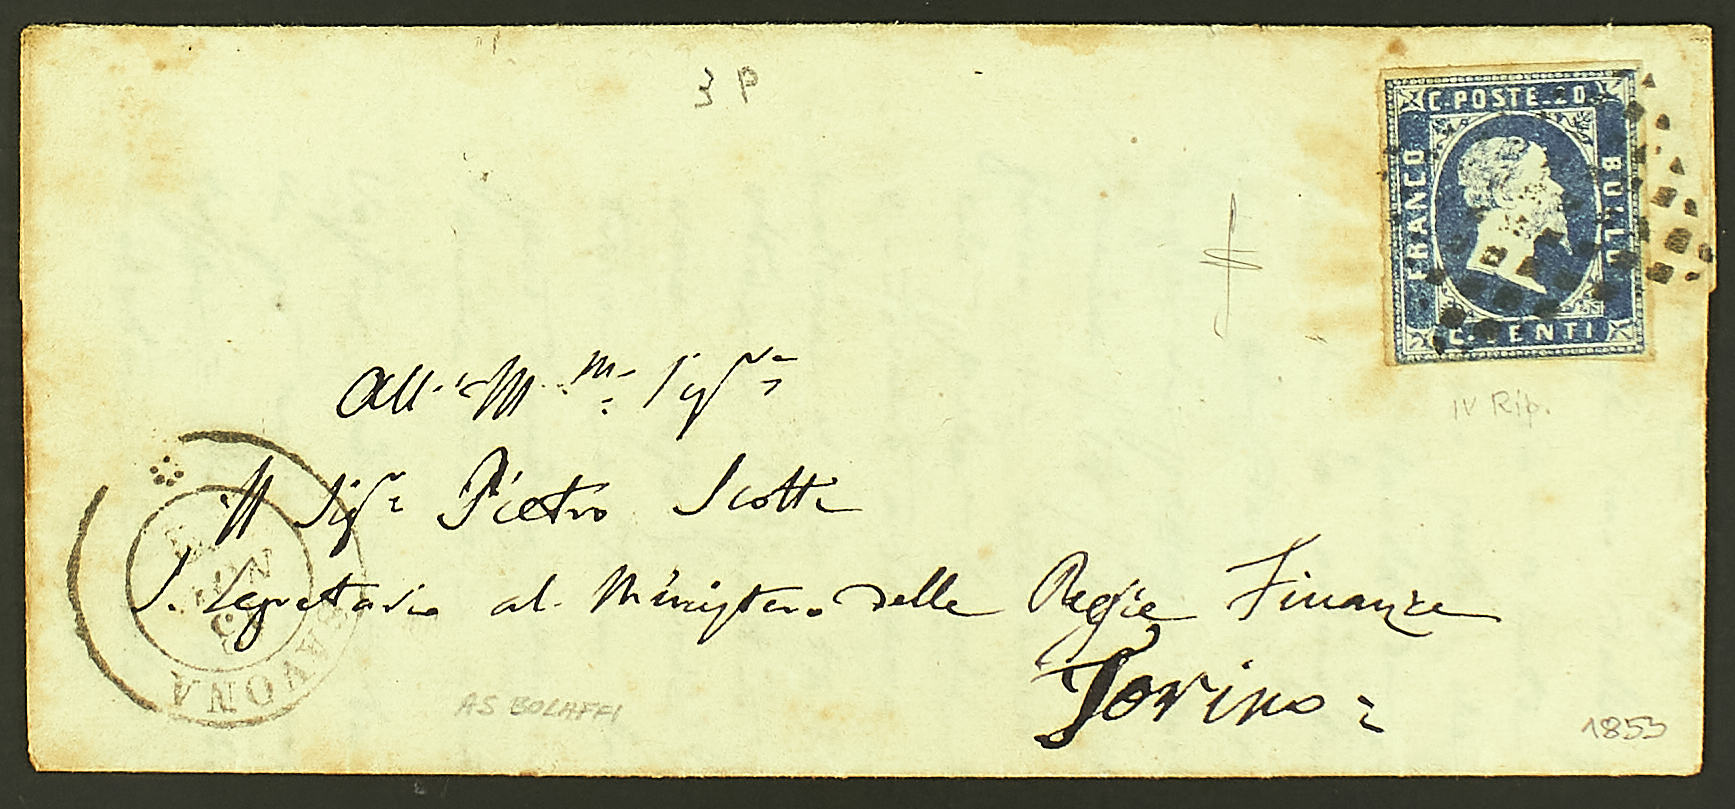 3 P
C. POSTE. 20
FRANCO
BOLLO
C. CENTI
20
IV Rip.
All' Ill.mo Sig.r
Il Sig.r Pietro Scotti
S. Segretario al Ministero delle Regie Finanze
Torino
SAVONA
NOV
AS BOLAFFI
1853